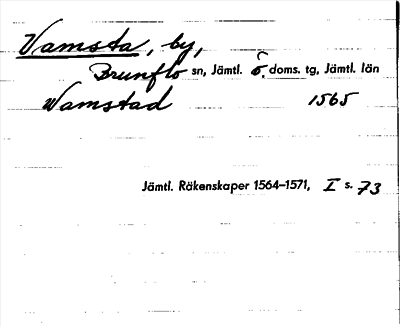 Vamsta, by,
Brunflo sn, Jämtl. ö. doms. tg, Jämtl. län
Wamstad 1565
Jämtl. Räkenskaper 1564–1571, I s. 73